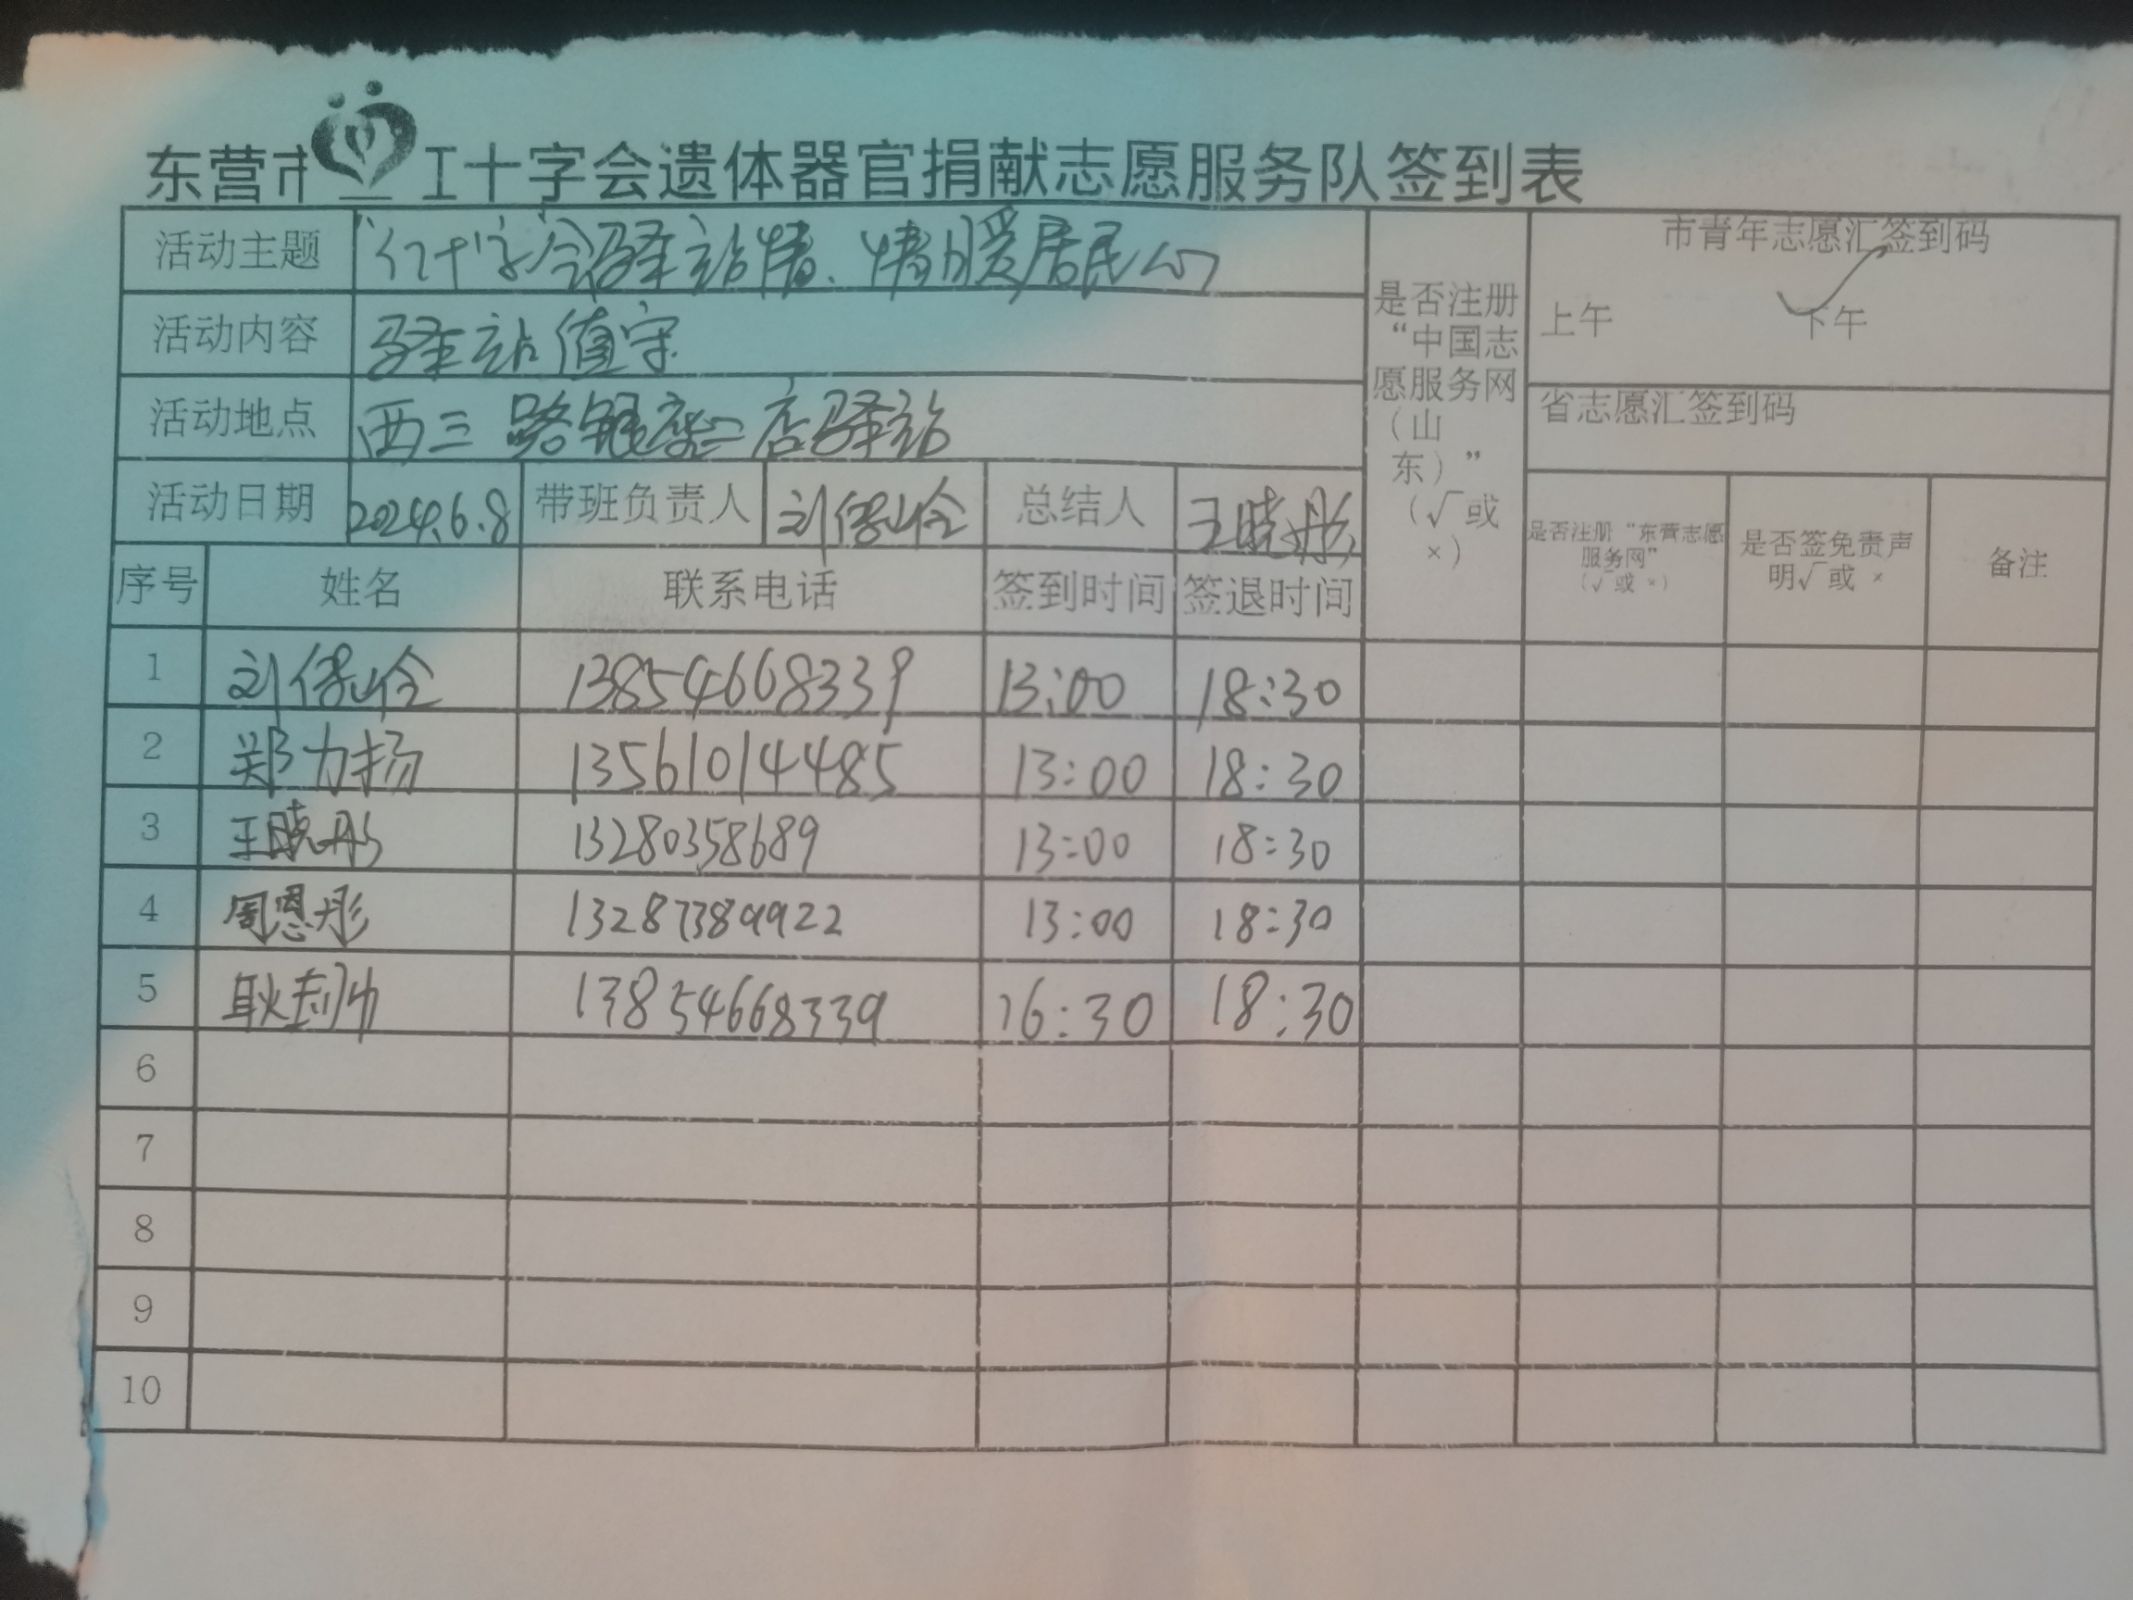 东营市红十字会遗体器官捐献志愿服务队签到表
活动主题 “红十字”会驿站情、情暖居民心
活动内容 驿站值守
活动地点 西三路银座二店驿站
活动日期 2024.6.8 带班负责人 刘 总结人 王晓彤
是否注册
“中国志
愿服务网
（山
东）”
（√或
×）
市青年志愿汇签到码
上午 √ 下午
省志愿汇签到码
是否注册“东营志愿
服务网”
（√或 ×）
是否签免责声
明√或 ×
备注
序号 姓名 联系电话 签到时间 签退时间
1 刘 13854668339 13:00 18:30
2 郑力扬 13561014485 13:00 18:30
3 王晓彤 13280358689 13:00 18:30
4 周恩彤 13287389922 13:00 18:30
5 耿 13854668339 16:30 18:30
6
7
8
9
10